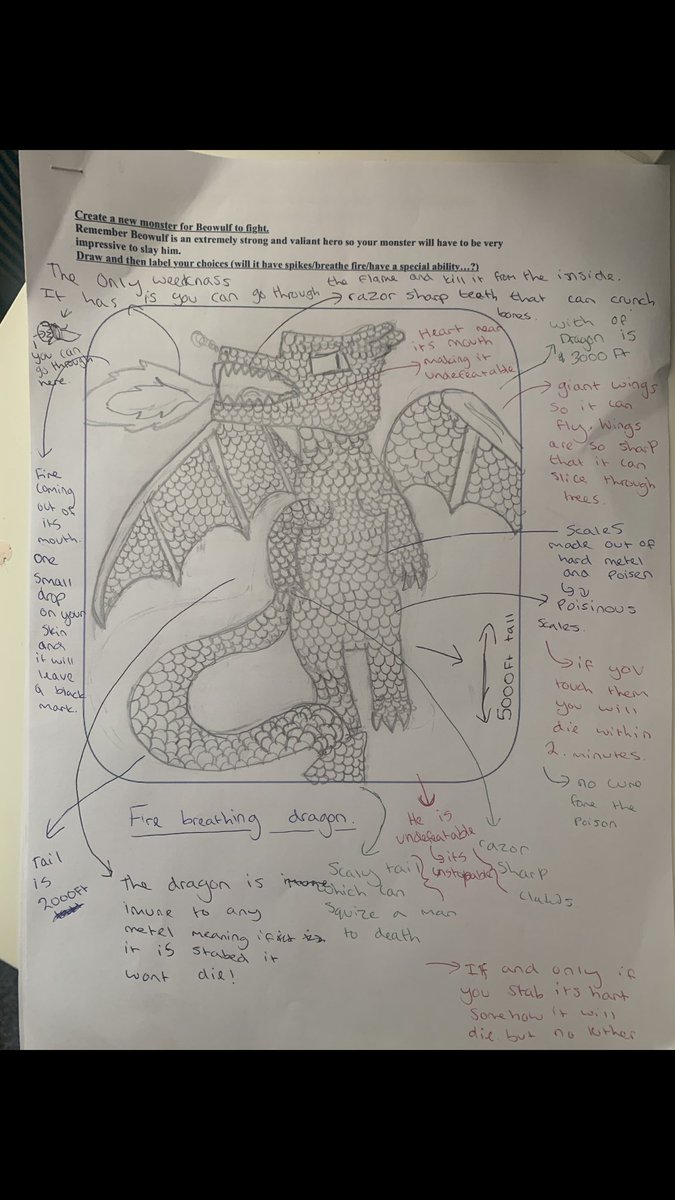 Create a new monster for Beowulf to fight.
Remember Beowulf is an extremely strong and valiant hero so your monster will have to be very
impressive to slay him.
Draw and then label your choices (will it have spikes/breathe fire/have a special ability…?)
The Only weeknass
It has is you can go through
the Flame and kill it from the inside.
razor sharp teath that can crunch
bones.
you can
go through
here.
Heart near
its mouth
making it
undefeatable
with of
Dragon is
3000 Ft
giant wings
so it can
fly. Wings
are so sharp
that it can
slice through
trees.
Fire
coming
out of
its
mouth.
one
small
drop
on your
skin
and
it will
leave
a black
mark.
Scales
made out of
hard metel
and Poisen
Poisinous
Scales.
if you
touch them
you will
die within
2. minutes.
no cure
fore the
Poison
5000Ft tall
Fire breathing dragon.
tail
is
2000Ft
the dragon is
imune to any
metel meaning if
it is stabed it
wont die!
Scaly tail
which can
Squize a man
to death
He is
undefeatable
its
unstopable
razor
sharp
If and only if
you stab its hart
Somehow it will
die but no